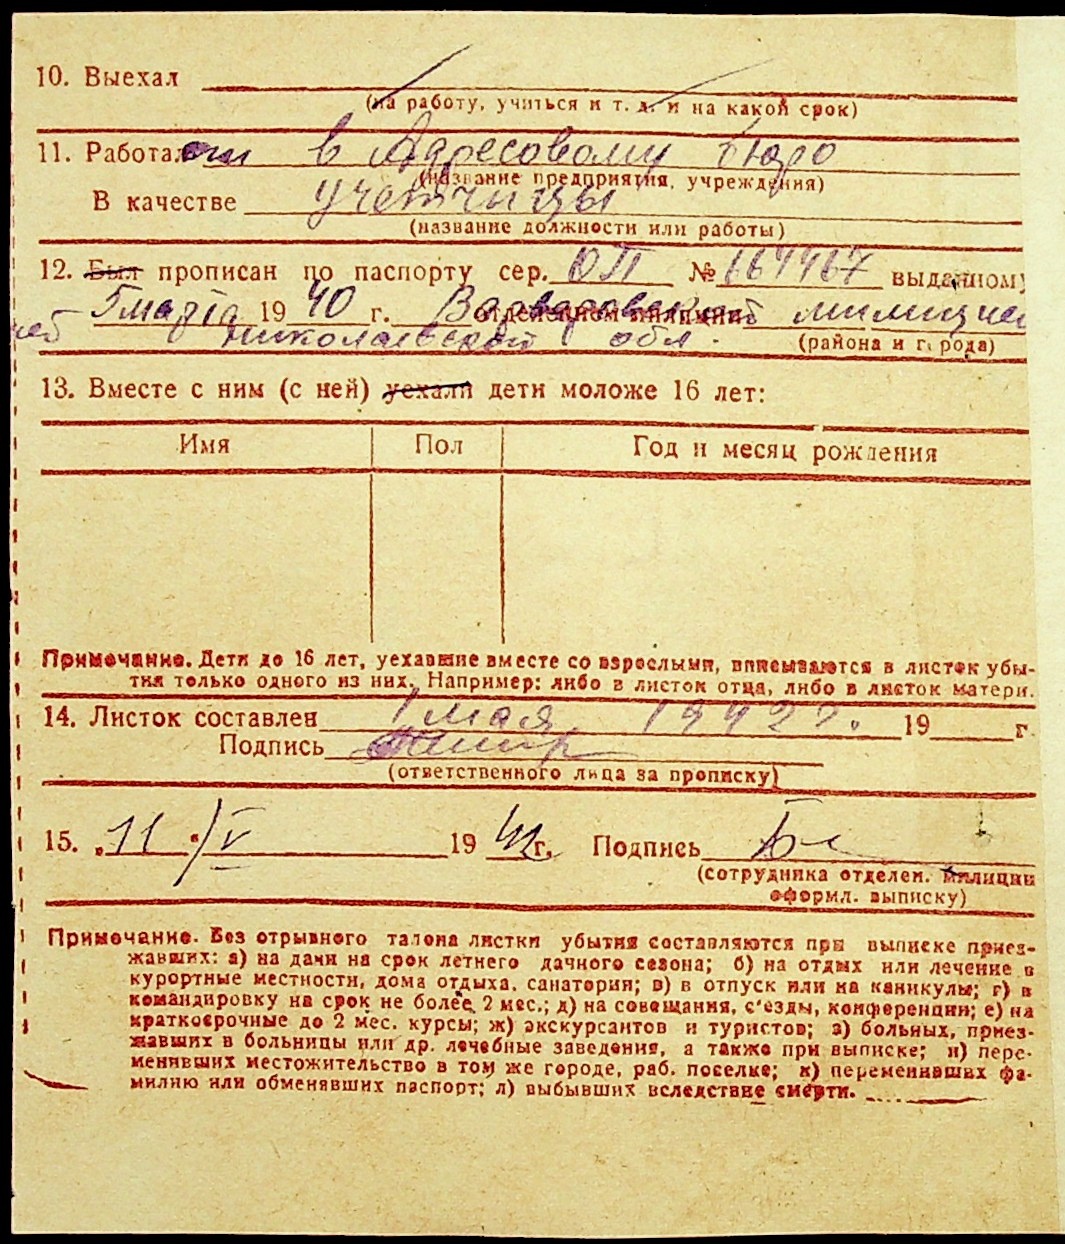 10. Выехал
(на работу, учиться и т. д. и на какой срок)
11. Работал в Адресовому бюро
(название предприятия, учреждения)
В качестве учетчицы
(название должности или работы)
12. Был прописан по паспорту сер. ОП № 664467 выданному
5 марта 1940 г. отделением милиции Варваровской милицией
Николаевской обл.
(района и города)
13. Вместе с ним (с ней) уехали дети моложе 16 лет:
Имя Пол Год и месяц рождения
Примечание. Дети до 16 лет, уехавшие вместе со взрослыми, вписываются в листок убы-
тия только одного из них. Например: либо в листок отца, либо в листок матери.
14. Листок составлен 1 мая 1942 г. 19 г.
Подпись
(ответственного лица за прописку)
15. „11“/V 1942 г. Подпись
(сотрудника отделен. милиции
оформл. выписку)
Примечание. Без отрывного талона листки убытия составляются при выписке приез-
жавших: а) на дачи на срок летнего дачного сезона; б) на отдых или лечение в
курортные местности, дома отдыха, санатории; в) в отпуск или на каникулы; г) в
командировку на срок не более 2 мес.; д) на совещания, с'езды, конференции; е) на
краткосрочные до 2 мес. курсы; ж) экскурсантов и туристов; з) больных, приез-
жавших в больницы или др. лечебные заведения, а также при выписке; и) пере-
менивших местожительство в том же городе, раб. поселке; к) переменивших фа-
милию или обменявших паспорт; л) выбывших вследствие смерти.